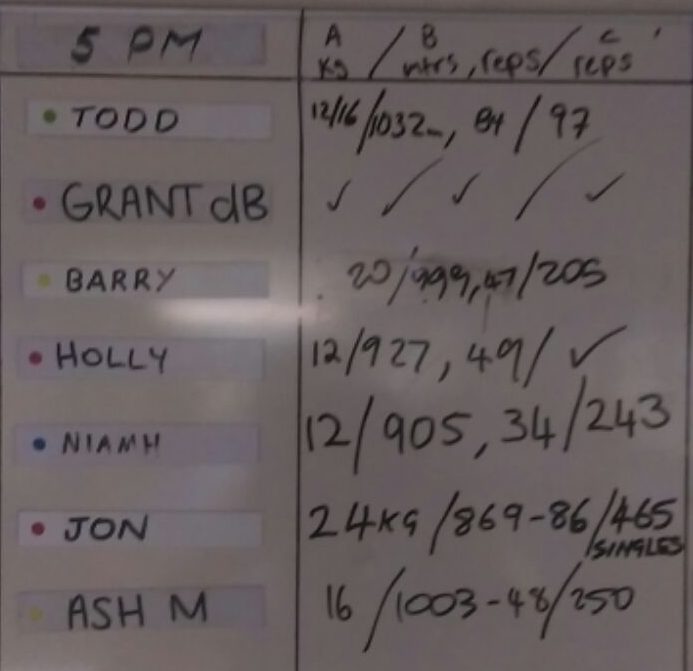 5 PM
A / B / C
KG / mtrs, reps / reps
• TODD 12/16/1032m, 84/97
• GRANT dB ✓ / ✓ / ✓
• BARRY 20/999,47/205
• HOLLY 12/927, 49/ ✓
• NIAMH 12/905, 34/243
• JON 24KG/869-86/465
SINGLES
• ASH M 16/1003-48/250